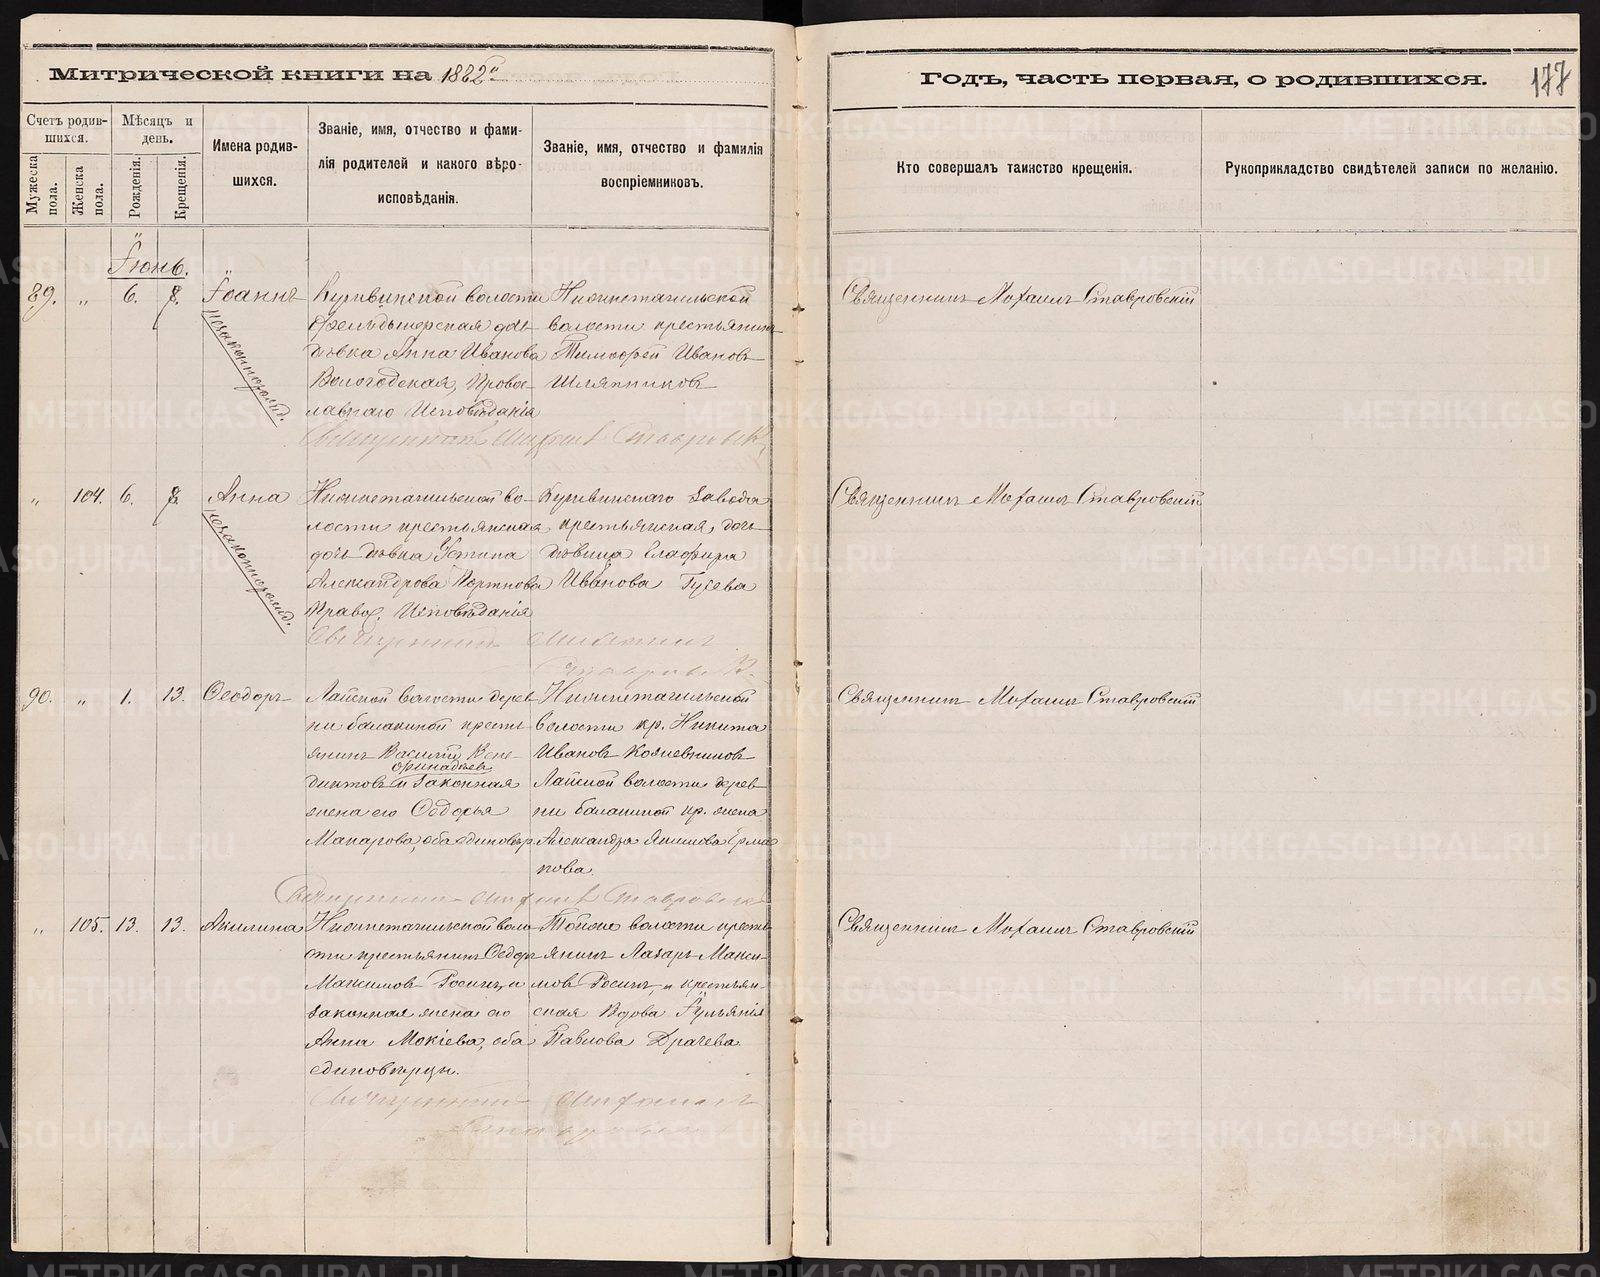 Митрической книги на 1882й
Годъ, часть первая, о родившихся.
177
Счетъ родив-
шихся.
Мужеска пола.
Женска пола.
Мѣсяцъ и
день.
Рожденія.
Крещенія.
Имена родив-
шихся.
Званіе, имя, отчество и фами-
лія родителей и какого вѣро-
исповѣданія.
Званіе, имя, отчество и фамилія
воспріемниковъ.
Кто совершалъ таинство крещенія.
Рукоприкладство свидѣтелей записи по желанію.
Іюнь.
89. „ 6. 8. Іоаннъ
незаконнорожд.
Кушвинской волости
фельдшерская дочь
дѣвка Анна Иванова
Вологодская, Правос-
лавнаго Исповѣданія
Нижнетагильской
волости крестьянинъ
Тимофей Ивановъ
Шляпниковъ
Священникъ Михаилъ Ставровскій
Священникъ Михаилъ Ставровск
„ 104. 6. 8. Анна
незаконнорожд.
Нижнетагильской во-
лости крестьянская
дочь дѣвка Устина
Александрова Портнова
Правос. Исповѣданія
Кушвинскаго завода
крестьянская дочь
дѣвица Глафира
Иванова Гусева
Священникъ Михаилъ Ставровскій
Священникъ Михаилъ
Ставровск
90. „ 1. 13. Ѳеодоръ
Лайской волости дерев
ни Балакиной кресть
янинъ Василій Вене-
диктовъ и законная
жена его Ѳеодосья
Макарова, оба единовѣр
Нижнетагильской
волости кр. Никита
Ивановъ Кожевниковъ
Лайской волости дерев-
ни Балакиной кр. жена
Александра Якимова Ерма
кова.
Священникъ Михаилъ Ставровскій
Священникъ Михаилъ Ставровск
„ 105. 13. 13. Акилина
Нижнетагильской воло
сти крестьянинъ Ѳедоръ
Максимовъ Росинъ, и
законная жена его
Анна Мокіева, оба
единовѣрцы.
Тойже волости кресть
янинъ Лазарь Макси-
мовъ Росинъ, и крестьян-
ская вдова Іульянія
Павлова Драчева.
Священникъ Михаилъ Ставровскій
Священникъ Михаилъ
Ставровск
METRIKI.GASO-URAL.RU